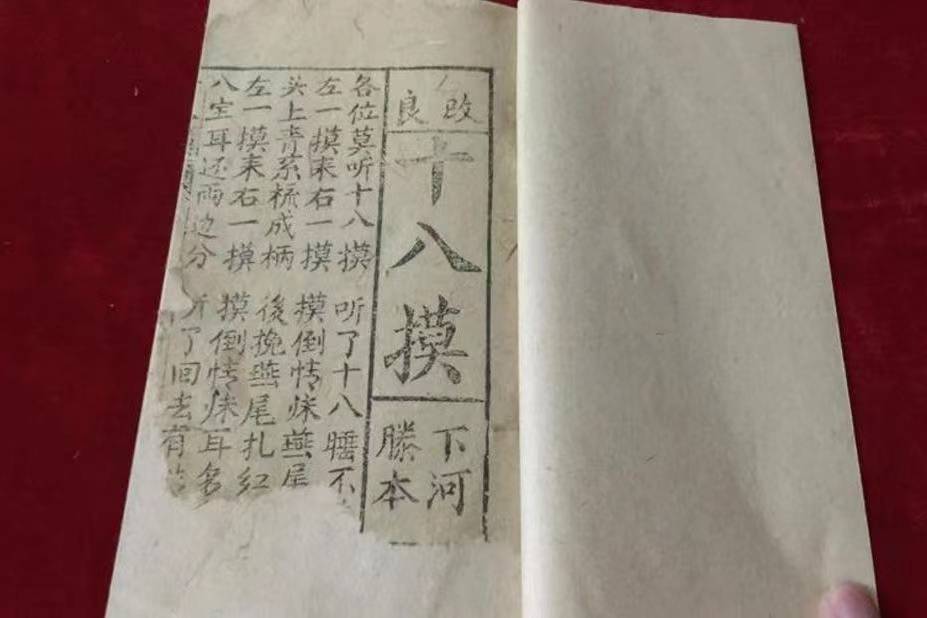 改良
十八摸
下河
滕本
各位莫听十八摸 听了十八睡不
左一摸来右一摸 摸倒情妹燕尾
头上青系梳成柄 後挽燕尾扎红
左一摸来右一摸 摸倒情妹耳
八宝耳还两边分 了回去有